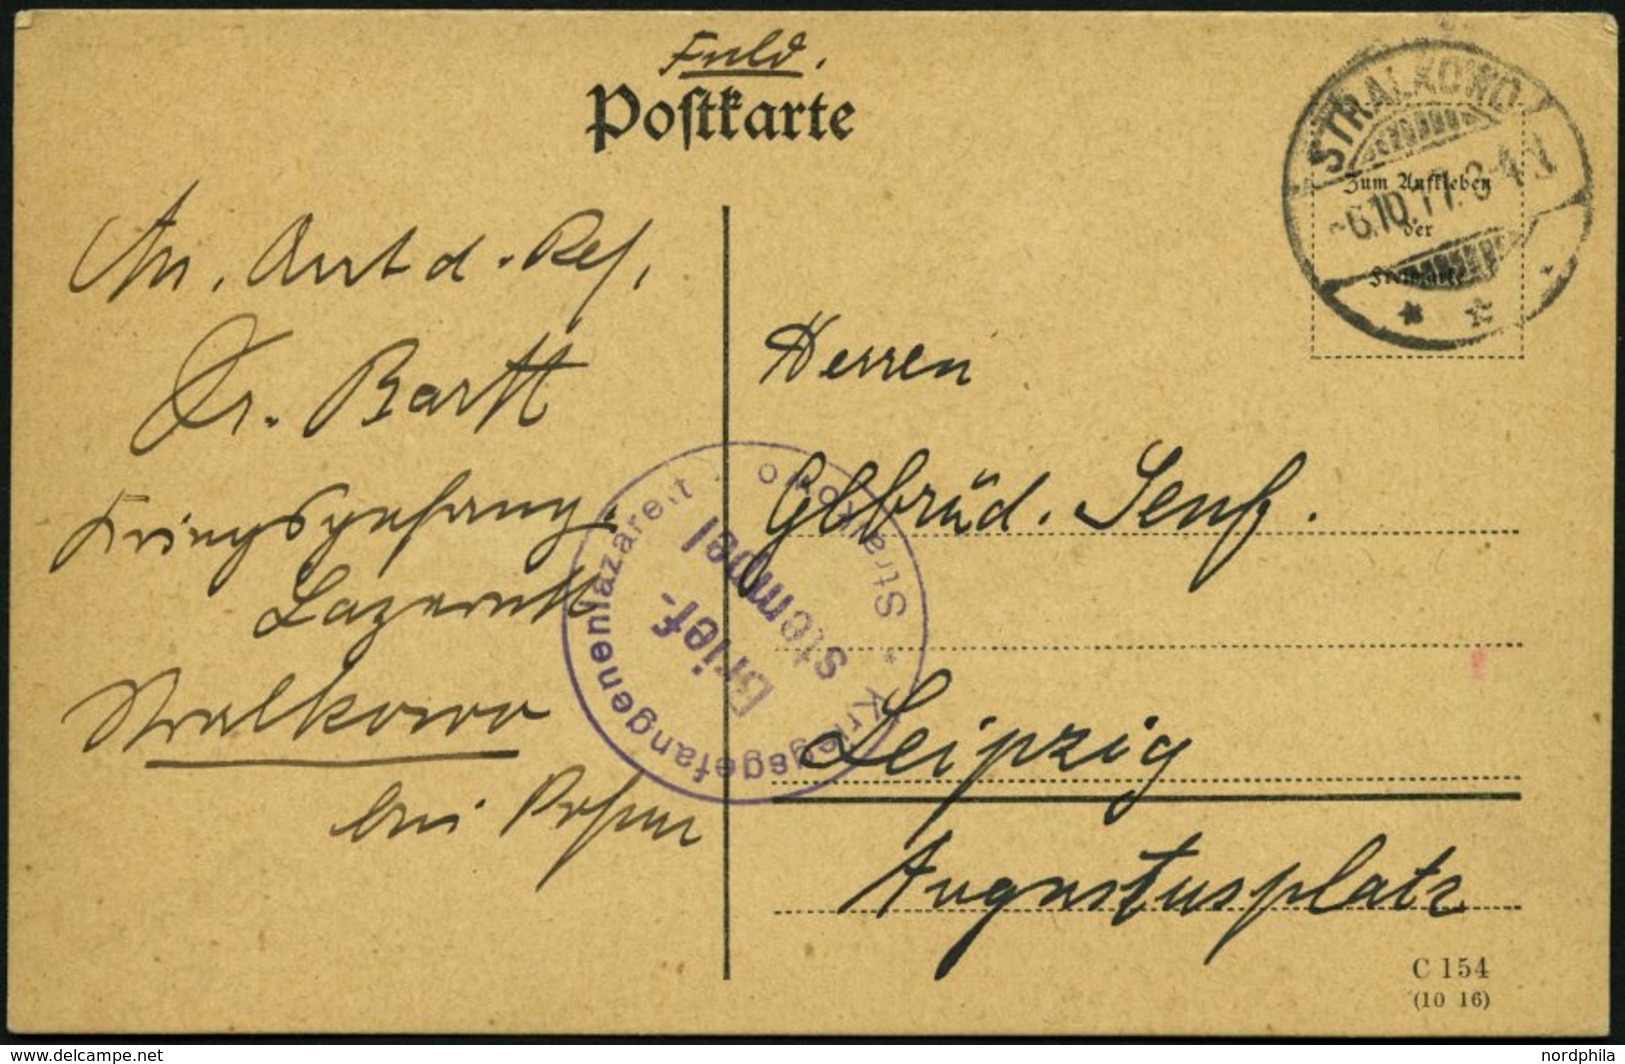 Feld.
Postkarte
STRALKOWO
-6.10.17. 3-4 N
Zum Aufkleben
der
Freimarke
Arzt d. Res.
Dr. Bartt
Kriegsgefang.
Lazarett
Stralkowo
bei Posen
Kriegsgefangenenlazarett · Stralkowo *
Brief-
stempel
Herren
Gebrüd. Senf.
Leipzig
Augustusplatz
C 154
(10 16)
www.delcampe.net
nordphila